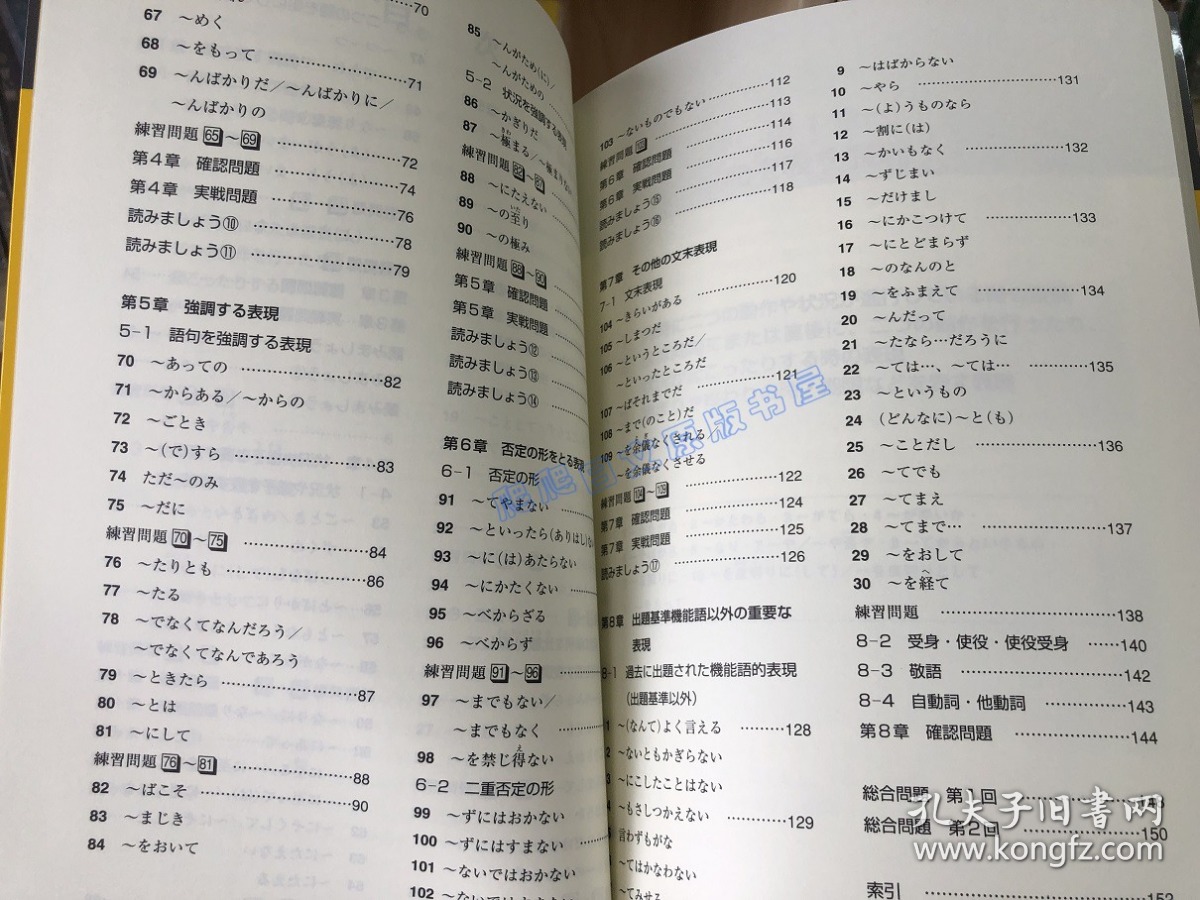 70
67 ～めく
68 ～をもって ……71
69 ～んばかりだ／～んばかりに／
～んばかりの
練習問題65～69 ……72
第4章 確認問題 ……74
第4章 実戦問題 ……76
読みましょう⑩ ……78
読みましょう⑪ ……79
第5章 強調する表現
5-1 語句を強調する表現
70 ～あっての ……82
71 ～からある／～からの
72 ～ごとき
73 ～(で)すら ……83
74 ただ～のみ
75 ～だに
練習問題70～75 ……84
76 ～たりとも ……86
77 ～たる
78 ～でなくてなんだろう／
～でなくてなんであろう
79 ～ときたら ……87
80 ～とは
81 ～にして
練習問題76～81 ……88
82 ～ばこそ ……90
83 ～まじき
84 ～をおいて
85 ～んがため(に)／
～んがための
5-2 状況を強調する表現
86 ～かぎりだ
87 ～極まる／～極まりない
練習問題82～87
88 ～にたえない
89 ～の至り
90 ～の極み
練習問題88～90
第5章 確認問題
第5章 実戦問題
読みましょう⑫
読みましょう⑬
読みましょう⑭
第6章 否定の形をとる表現
6-1 否定の形
91 ～てやまない
92 ～といったら(ありはし)な
93 ～に(は)あたらない
94 ～にかたくない
95 ～べからざる
96 ～べからず
練習問題91～96
97 ～までもない／
～までもなく
98 ～を禁じ得ない
6-2 二重否定の形
99 ～ずにはおかない
100 ～ずにはすまない
101 ～ないではおかない
102
112
103 ～ないものでもない ……113
練習問題 ……114
第6章 確認問題 ……116
第6章 実戦問題 ……117
読みましょう⑮ ……118
読みましょう⑯
第7章 その他の文末表現
7-1 文末表現
104 ～きらいがある ……120
105 ～しまつだ
106 ～というところだ／
～といったところだ
107 ～ばそれまでだ ……121
108 ～まで(のこと)だ
109 ～を余儀なくされる／
～を余儀なくさせる
練習問題104～109 ……122
第7章 確認問題 ……124
第7章 実戦問題 ……125
読みましょう⑰ ……126
第8章 出題基準機能語以外の重要な
表現
8-1 過去に出題された機能語的表現
(出題基準以外)
1 ～(なんて)よく言える ……128
2 ～ないともかぎらない
3 ～にこしたことはない
4 ～もさしつかえない ……129
言わずもがな
～てはかなわない
～てみせる
9 ～はばからない
10 ～やら ……131
11 ～(よ)うものなら
12 ～割に(は)
13 ～かいもなく ……132
14 ～ずじまい
15 ～だけまし
16 ～にかこつけて ……133
17 ～にとどまらず
18 ～のなんのと
19 ～をふまえて ……134
20 ～んだって
21 ～たなら…だろうに
22 ～ては…、～ては… ……135
23 ～というもの
24 (どんなに)～と(も)
25 ～ことだし ……136
26 ～てでも
27 ～てまえ
28 ～てまで… ……137
29 ～をおして
30 ～を経て
練習問題 ……138
8-2 受身・使役・使役受身 ……140
8-3 敬語 ……142
8-4 自動詞・他動詞 ……143
第8章 確認問題 ……144
総合問題 第1回 ……148
総合問題 第2回 ……150
索引 ……152
孔夫子旧书网
www.kongfz.com